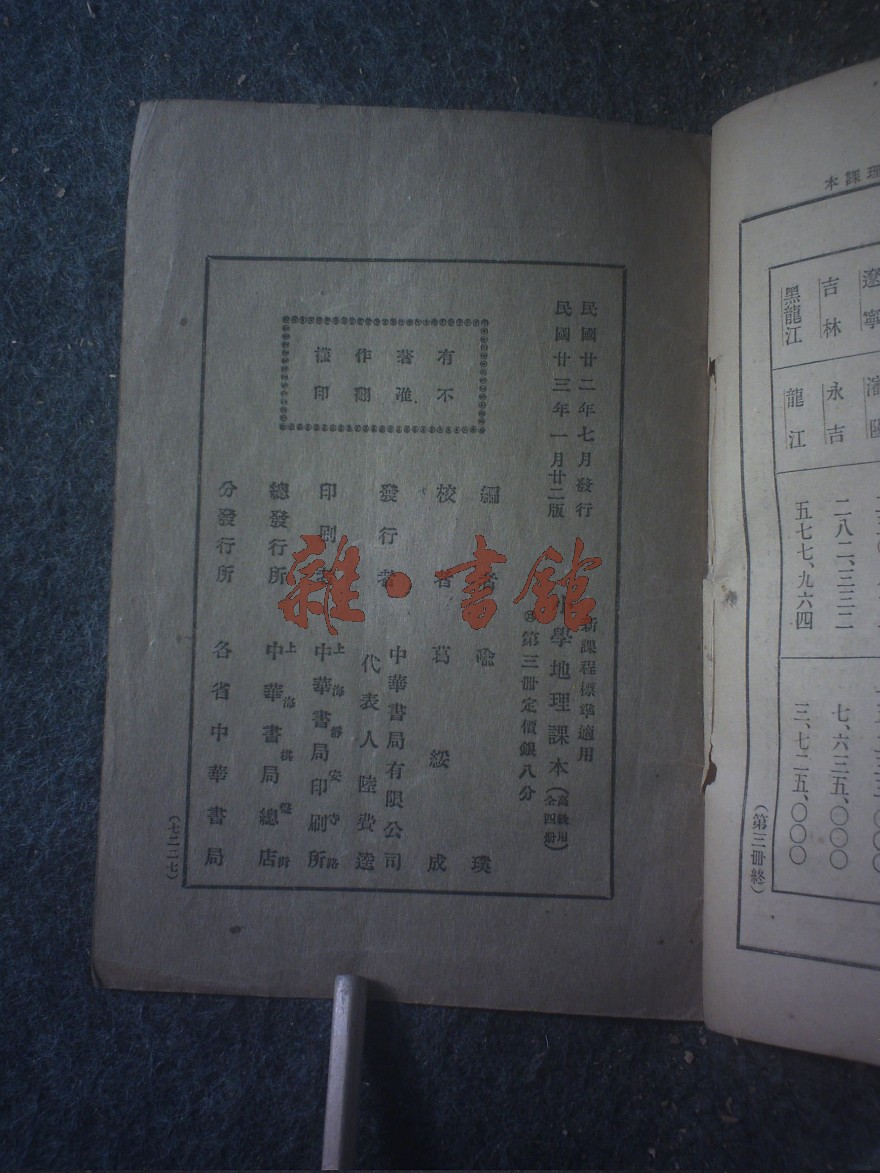 民國廿二年七月發行
民國廿三年一月廿二版
有著作權
不准翻印
新課程標準適用
小學地理課本(高級用 全四冊)
第三冊定價銀八分
編者 喻璞
校者 葛綏成
發行者 中華書局有限公司
代表人陸費逵
印刷者 上海靜安寺路
中華書局印刷所
總發行所 上海棋盤街
中華書局總店
分發行所 各省中華書局
(七二二七)
雜·書館
理課本
遼寧 瀋陽
吉林 永吉 二八二、三三二 七、六三五、〇〇〇
黑龍江 龍江 五七七、九六四 三、七二五、〇〇〇
(第三冊終)